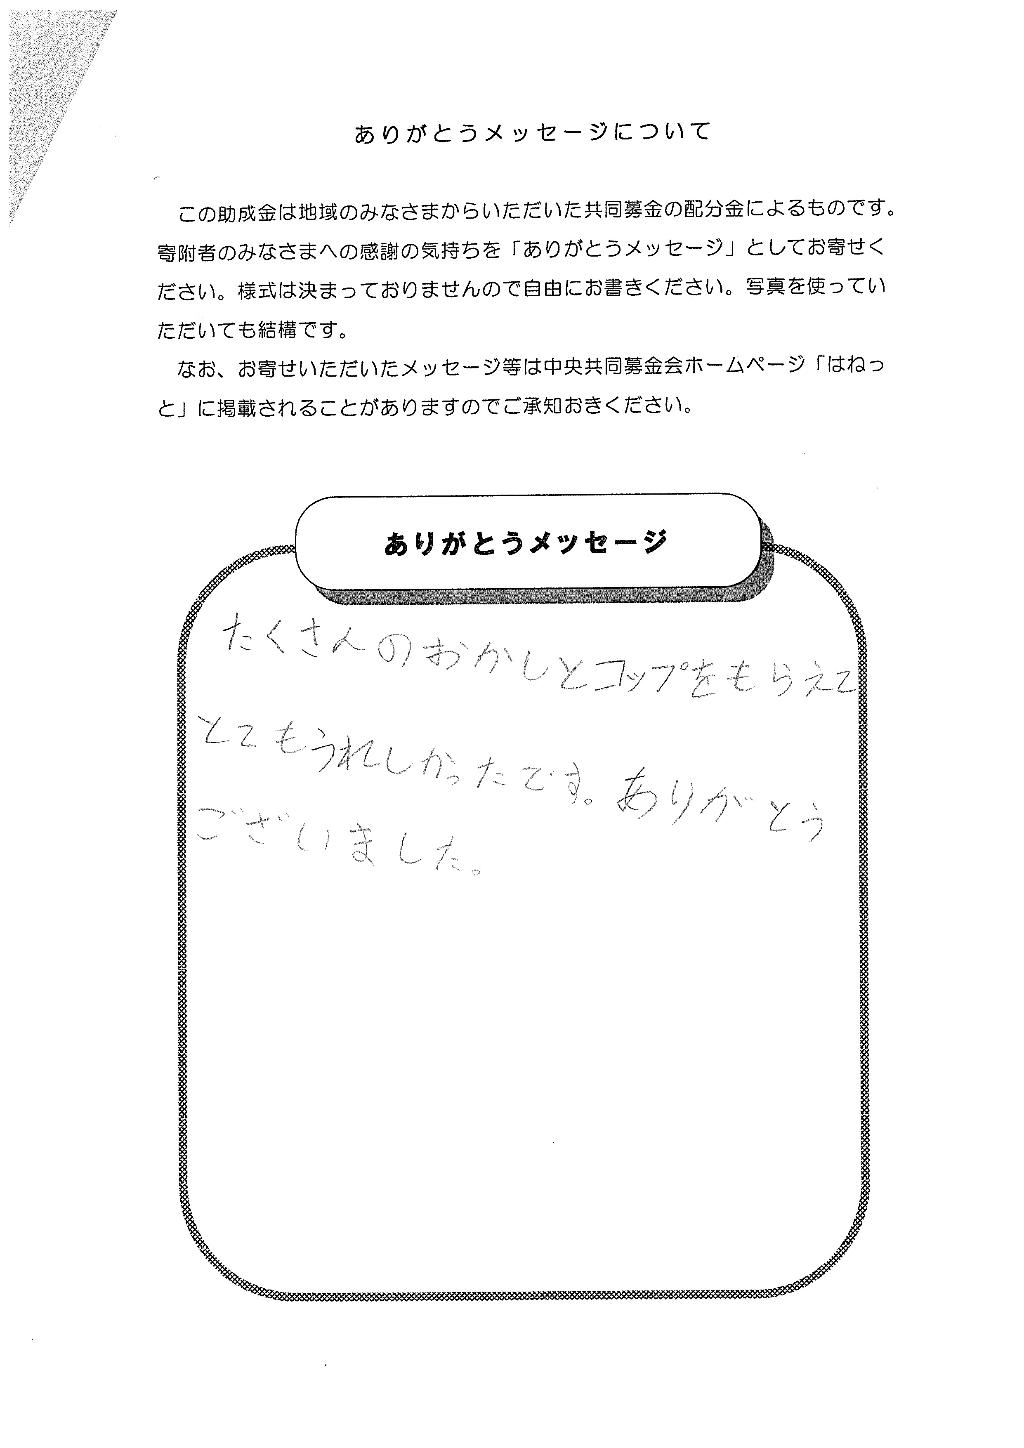 ありがとうメッセージについて
この助成金は地域のみなさまからいただいた共同募金の配分金によるものです。
寄附者のみなさまへの感謝の気持ちを「ありがとうメッセージ」としてお寄せく
ださい。様式は決まっておりませんので自由にお書きください。写真を使ってい
ただいても結構です。
なお、お寄せいただいたメッセージ等は中央共同募金会ホームページ「はねっ
と」に掲載されることがありますのでご承知おきください。
ありがとうメッセージ
たくさんのおかしとコップをもらえて
とてもうれしかったです。ありがとう
ございました。